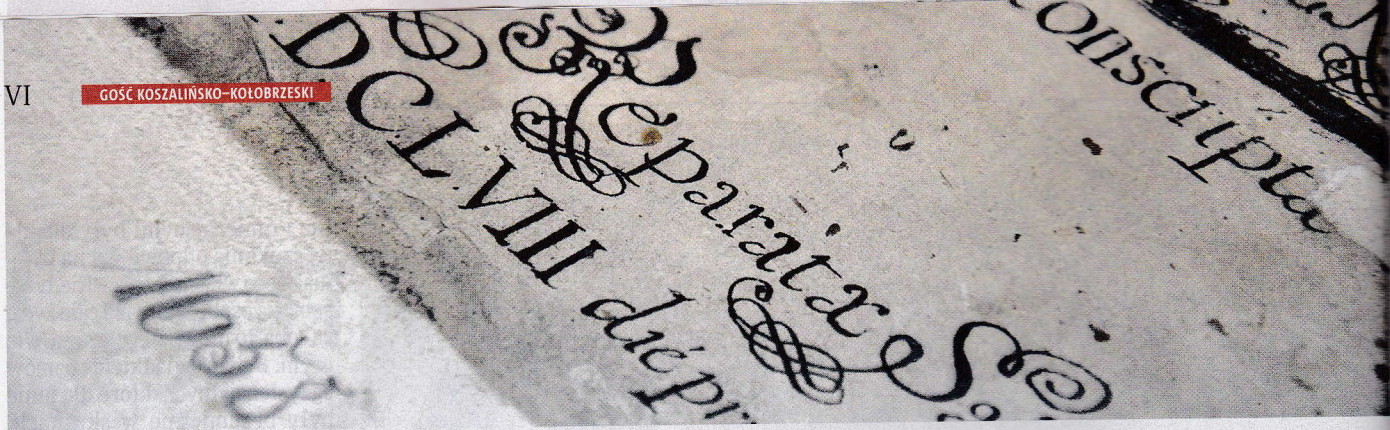 VI
GOŚĆ KOSZALIŃSKO–KOŁOBRZESKI
onscripta
DCLVIII die
1658